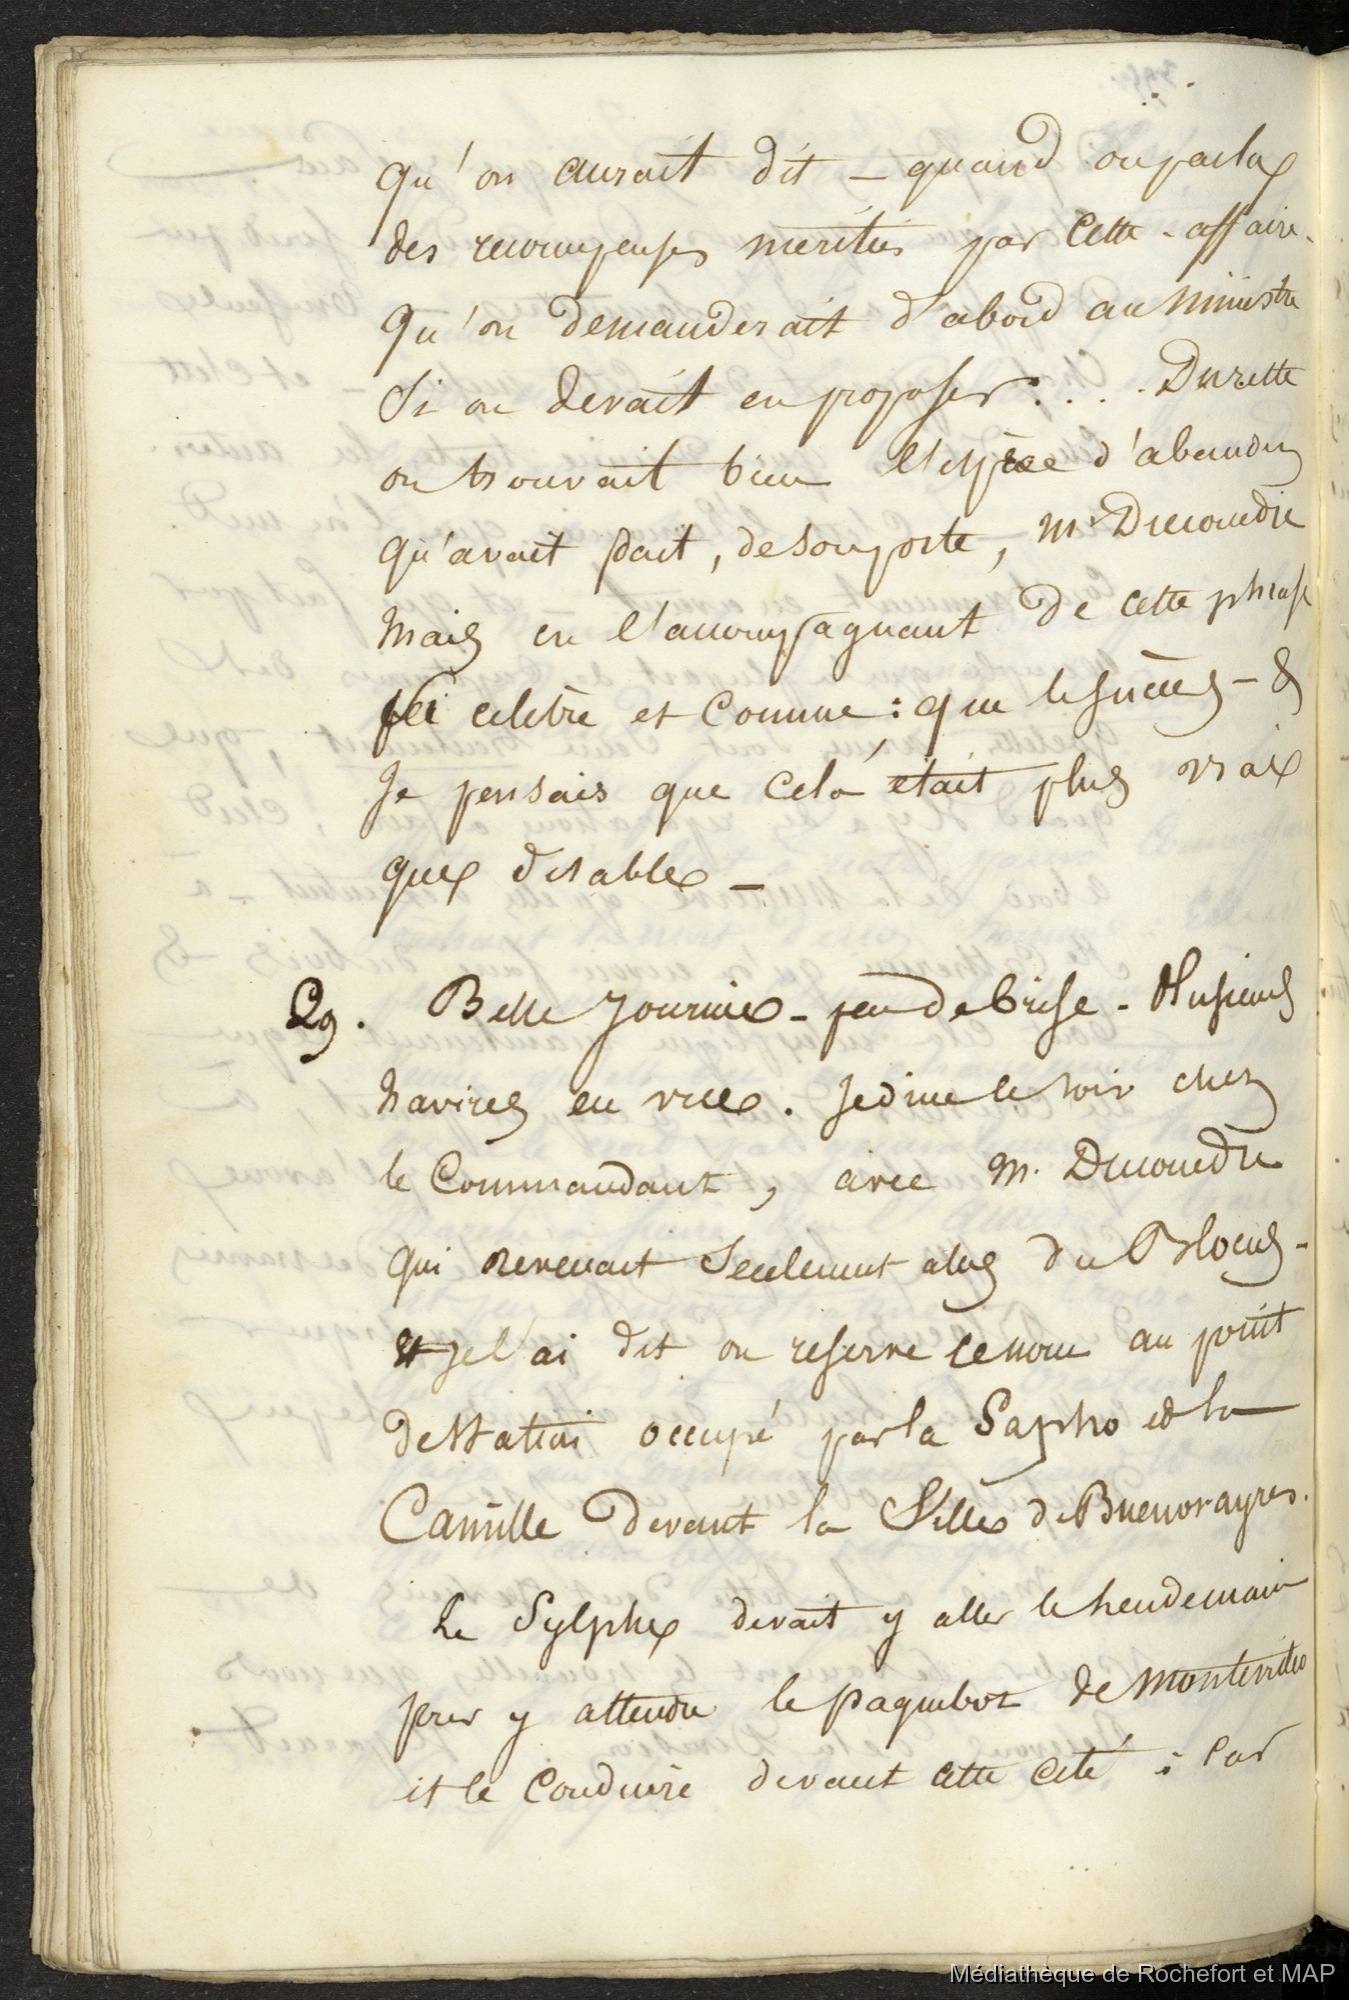 qu'on aurait dit – quand on parla
des recompenses méritées par cette affaire.
qu'on demanderait d'abord au Ministre
si on devait en proposer. . . . Du reste
on trouvait bien l'espèce d'abandon
qu'avait fait, de son poste, Mr Ducouëdic
mais en l'accompagnant de cette phrase
si celèbre et connue : que le succès – &
je pensais que celà était plus vrai
que disable –
29. Belle journée – peu de brise – Plusieurs
navires en vue. Je dine le soir chez
le Commandant, avec M. Ducouëdic
qui revenait seulement alors du Blocus –
je l'ai dit on reserve ce nom au point
de station occupé par la Sapho et la
Camille devant la Ville de Buenos ayres.
Le Sylphe devait y aller le lendemain
pour y attendre le paquebot de Montevideo
et le conduire devant cette cité ; car
Médiathèque de Rochefort et MAP